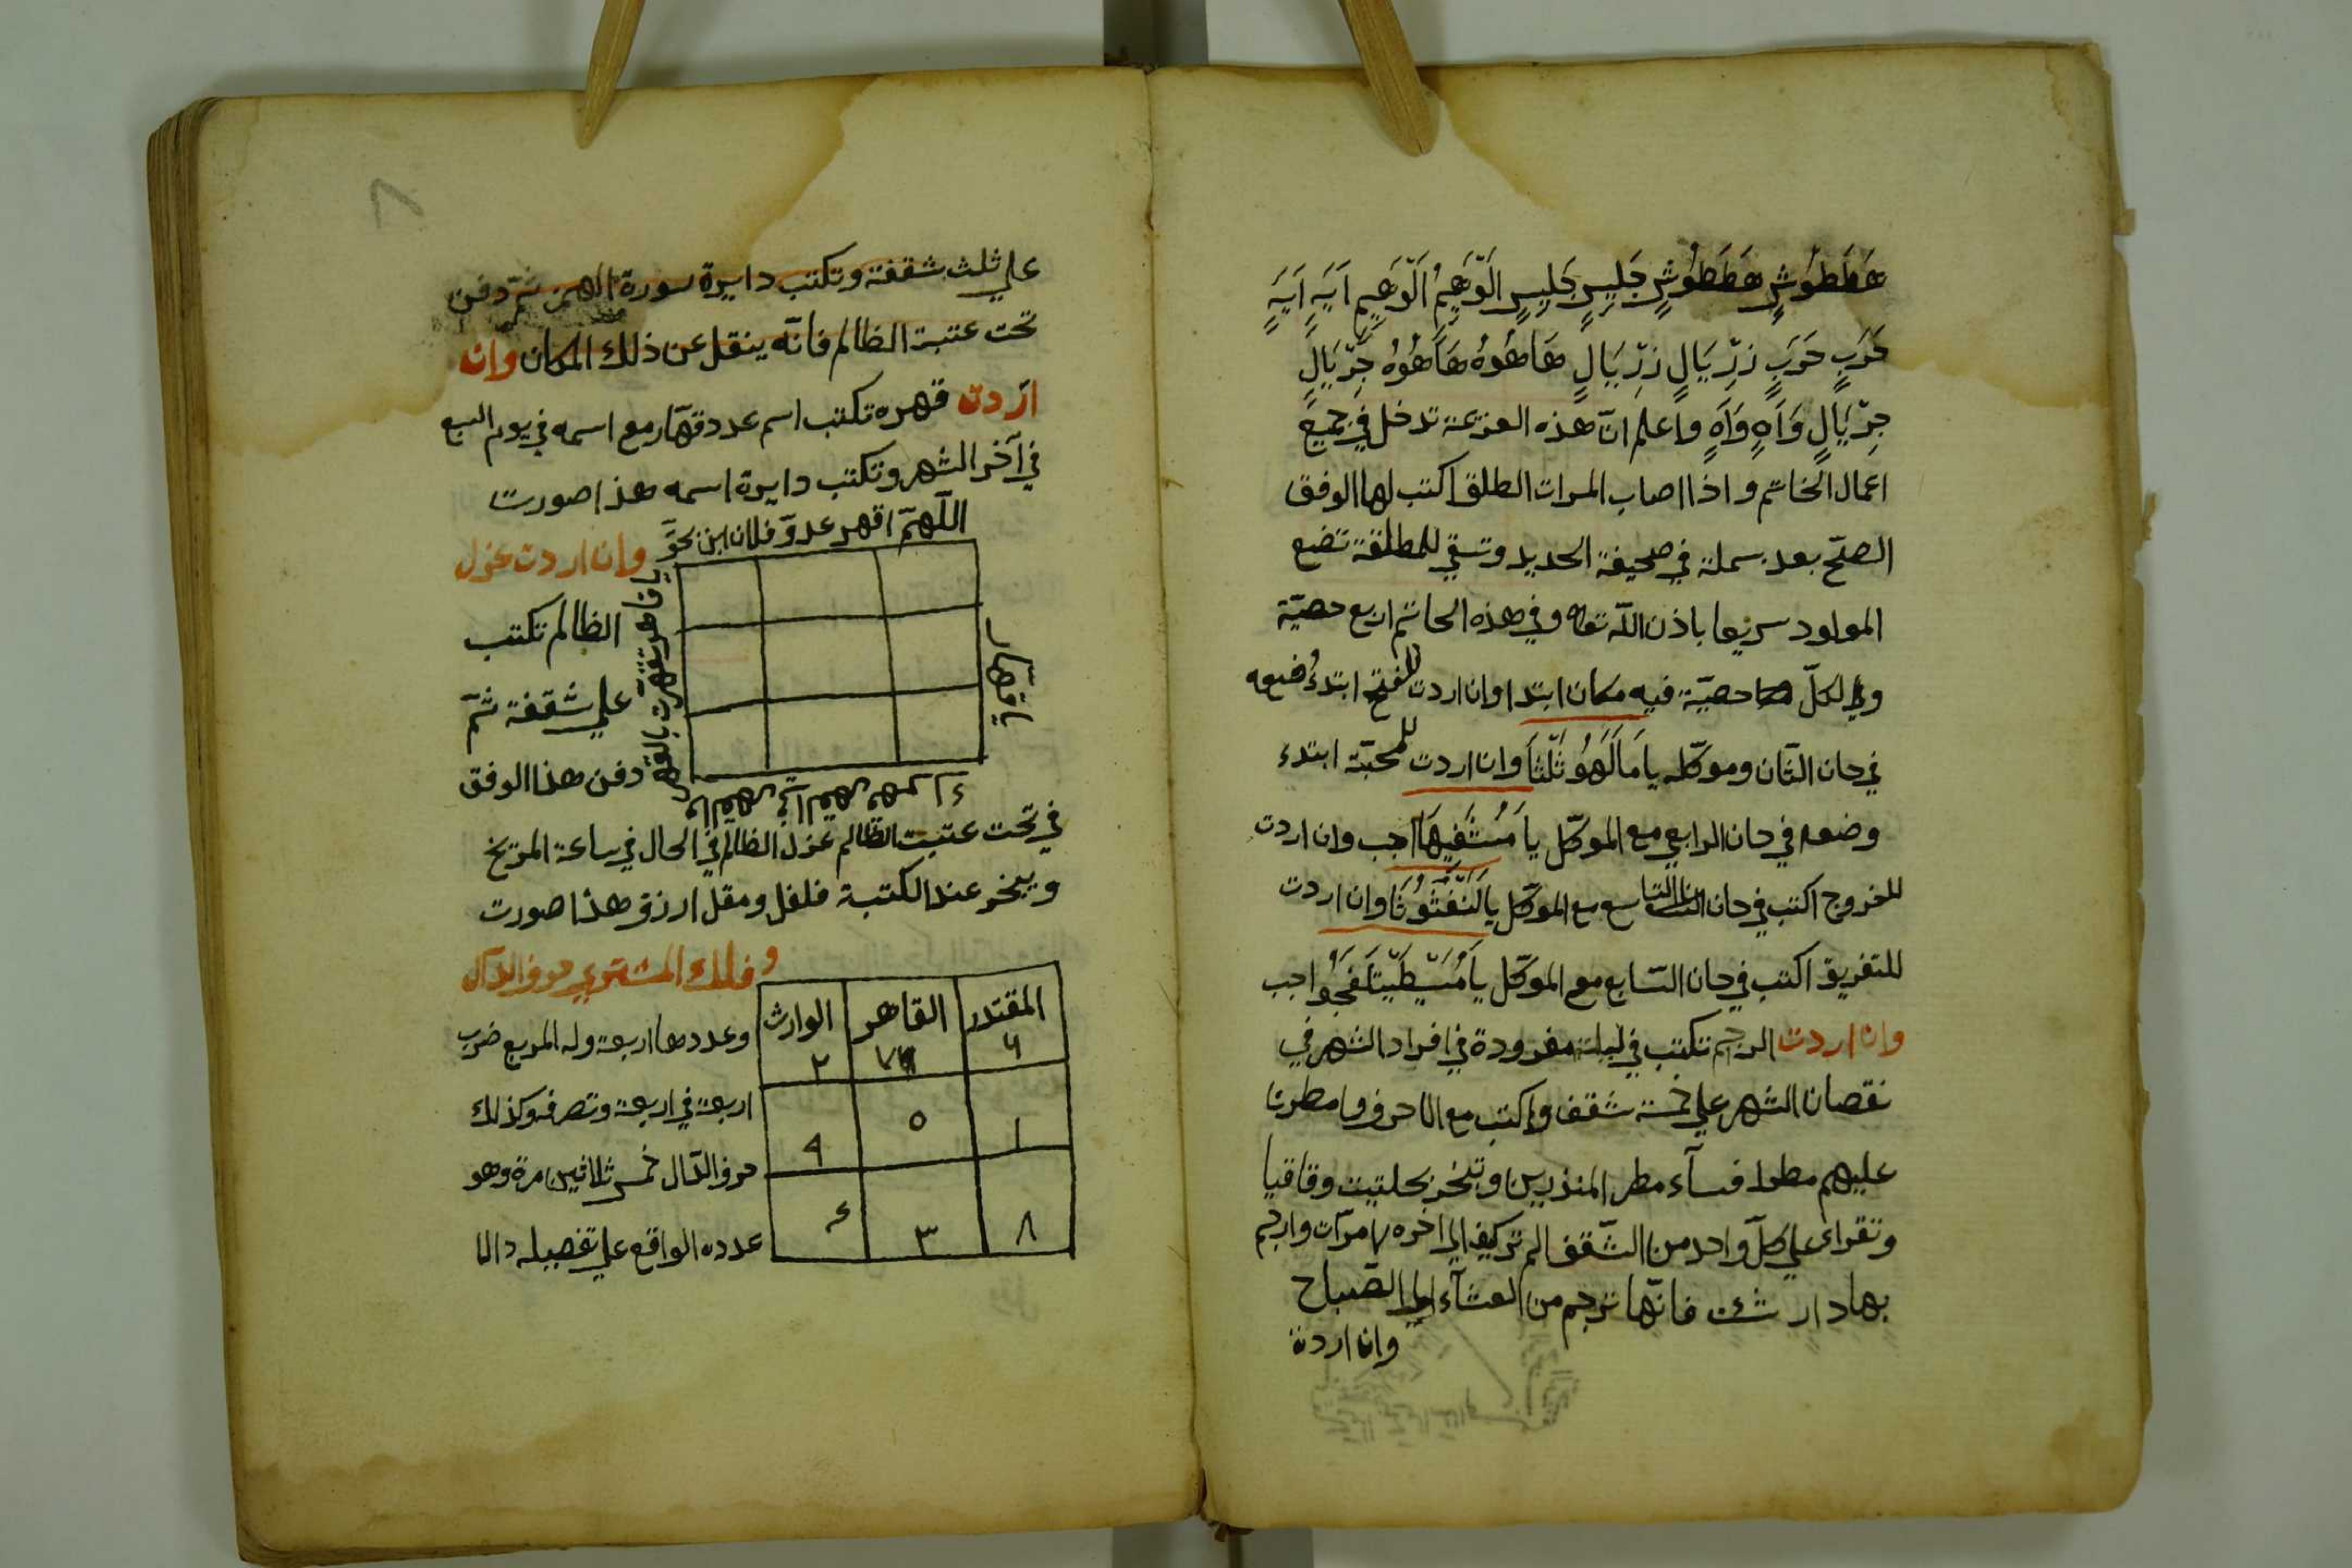 هَطَطُوْشٍ هَطَطُوْشٍ جَلِيسٍ جَلِيسٍ اَلْوَهِيْمُ اَلْوَهِيمِ اَيَهٍ اَيَهٍ
حَرَبٍ حَرَبٍ زِرْيَالٍ زِرْيَالٍ هَاهُوهُ هَاهُوهُ جِرْيَالٍ
جِرْيَالٍ وَاَهٍ وَاَهٍ واعلم انّ هذه العزيمة تدخل في جميع
اعمال الخاتم واذا اصاب المرات الطلق اكتب لها الوفق
الصحّ بعد بسملة في صحيفة الحديد وتسقي للمطلقة تضع
المولود سريعا باذن الله تعالى وفي هذه الخاتم اربع حصيّة
ولكلّ حصيّة فيه مكان ابتدا وان اردت للفتح ابتدءُ ضعه
في حان الثان وموكّله يا مَالَهُو ثَلْثَا وان اردت للمحبّة ابتدء
وضعه في حان الرابعي مع الموكّل يا مَسْتَفِيهَا اجب وان اردت
للخروج اكتب في حان التاسع مع الموكّل يا لَنَغَثُوثَا وان اردت
للتفريق اكتب في حان السّابع مع الموكّل يا اجب
وان اردت الرجم تكتب في ليلة مفرودة في افراد الشهر في
نقصان الشهر على خمسة شقف واكتب مع الاحرف وامطرنا
عليهم مطرا فسآء مطر المنذرين وتبخر بحلتيت وقاقيا
وتقراى على كلّ واحد من الشّقف الم تركيف الى اخره مرّات وارجم
بها دار شئت فانّها ترجم من العشآء الى الصّباح
وان اردة
٨
على ثلث شقفة وتكتب دايرة سورة الهمزة ثمّ دفن
تحت عتبة الظالم فانّه ينقل عن ذلك المكان وان
اردت قهره تكتب اسم عدد قهّار مع اسمه في يوم السبع
في آخر الشهر وتكتب دايرة اسمه هذا صورت
اللّهمّ اقهر عدوّ فلان ابن بحقّ
يا قهار
وان اردت عزل
الظالم تكتب
على شقفة ثمّ
دفن هذا الوفق
في تحت عتبت الظالم عزل الظالم في الحال في ساعة المريخ
ويبخر عند الكتبة فلفل ومقل ارزق هذا صورت
المقتدر القاهر الوارث
٦ ٧ ٢
١ ٥ ٩
٨ ٣ ٤
وفلك المشتري حرف الدال
وعددها اربعة وله المربع ضرب
اربعة في اربعة وتصرفه وكذلك
حرف الدّال خمس ثلاثين مرة وهو
عدده الواقع على تفصيله دالا